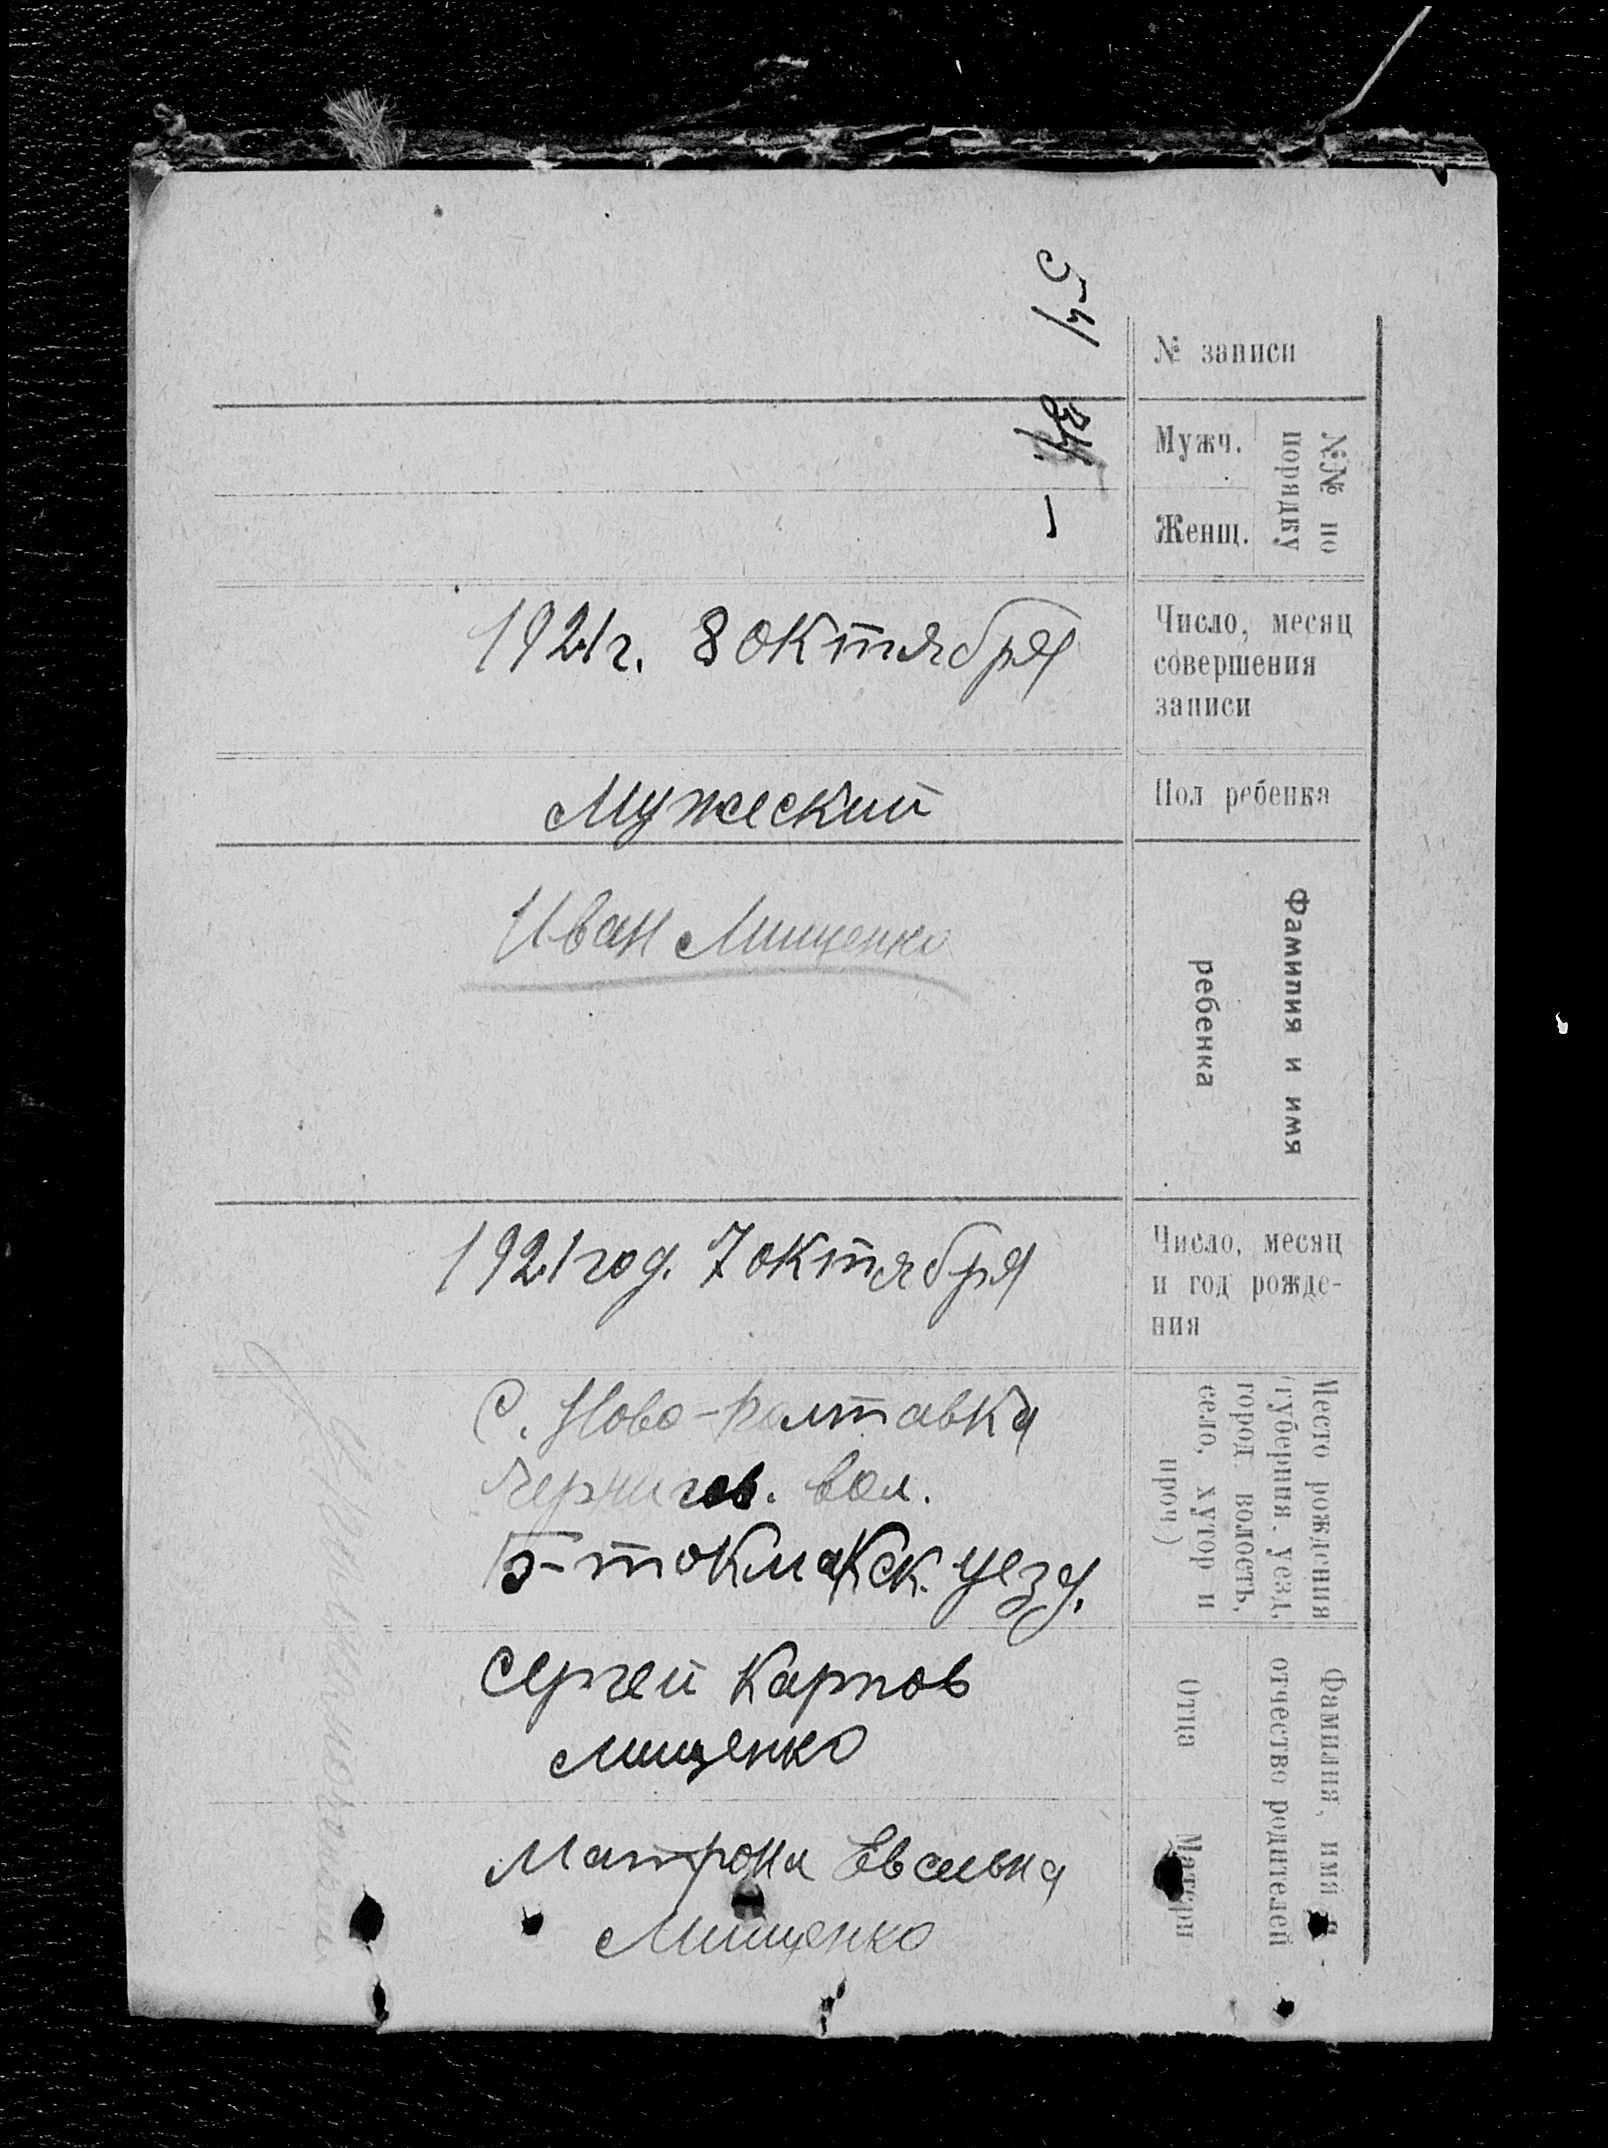 № записи
№№ по порядку
Мужч.
Женщ.
Число, месяц
совершения
записи
1921 г. 8 октября
Пол ребенка
Мужеский
Фамилия и имя
ребенка
Иван Мищенко
Число, месяц
и год рожде-
ния
1921 год. 7 октября
Место рождения
(губерния, уезд,
город волость,
село, хутор и
проч)
С. Ново-Полтавка
Чернигов. вол.
Б-Токмакск. уезд.
Фамилия, имя и
отчество родителей
Отца
Сергей Карпов
Мищенко
Матери
Матрона
Мищенко